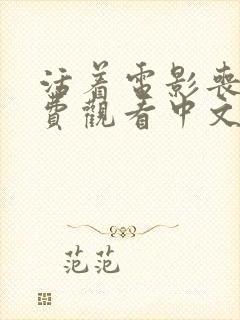 活着電影喪
費觀看中文
范范